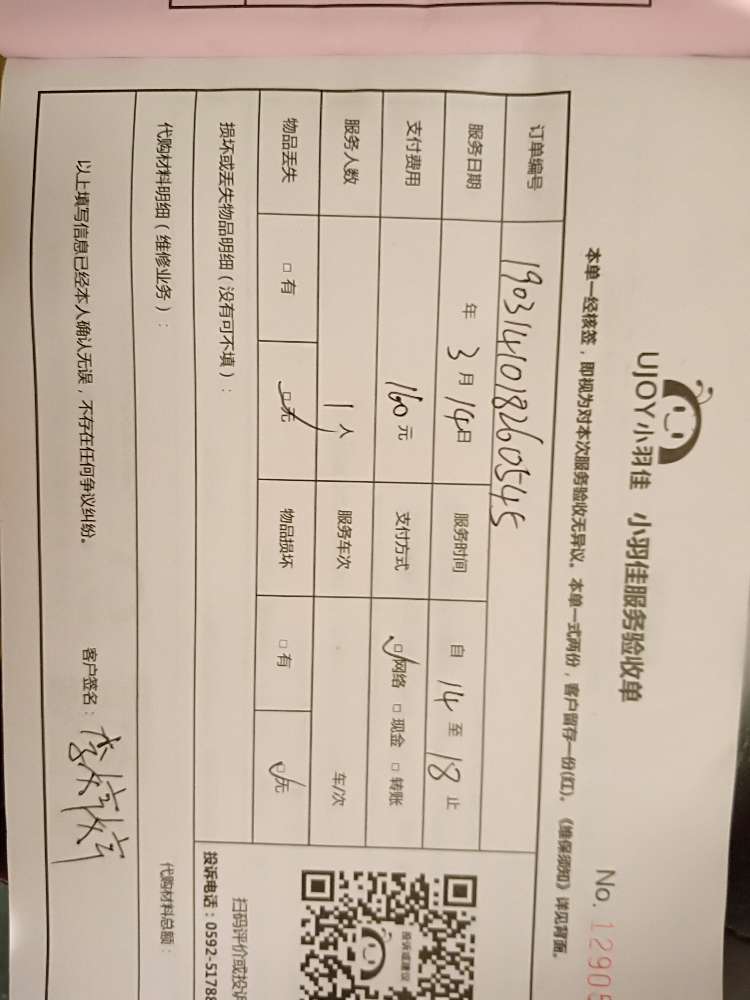 UJOY小羽佳 小羽佳服务验收单
No. 12905
本单一经核签，即视为对本次服务验收无异议。本单一式两份，客户留存一份(红)。《维保须知》详见背面。
订单编号 1903141018260545
服务日期 年 3 月 14 日 服务时间 自 14 至 18 止
支付费用 160 元 支付方式 ☑网络 □现金 □转账
服务人数 1 人 服务车次 车/次
物品丢失 □有 ☑无 物品损坏 □有 ☑无
损坏或丢失物品明细（没有可不填）：
投诉或建议
扫码评价或投诉
投诉电话：0592-5178
代购材料明细（维修业务）： 代购材料总额：
以上填写信息已经本人确认无误，不存在任何争议纠纷。 客户签名：李婷婷